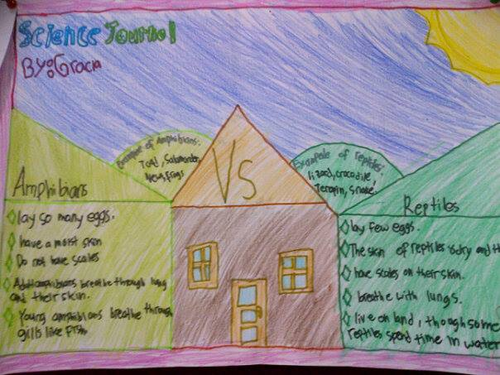 Science Journal
By: Gracia
Example of Amphibians:
Toad, Salamander,
Newt, frogs
Examples of reptiles:
lizard, crocodile,
Terrapin, snake.
VS
Amphibians
lay so many eggs.
have a moist skin
Do not have scales
Adult amphibians breathe through lung
and their skin.
Young amphibians breathe through
gills like fish
Reptiles
lay few eggs.
The skin of reptiles is dry and th
have scales on their skin.
breathe with lungs.
live on land, though some
reptiles spend time in water